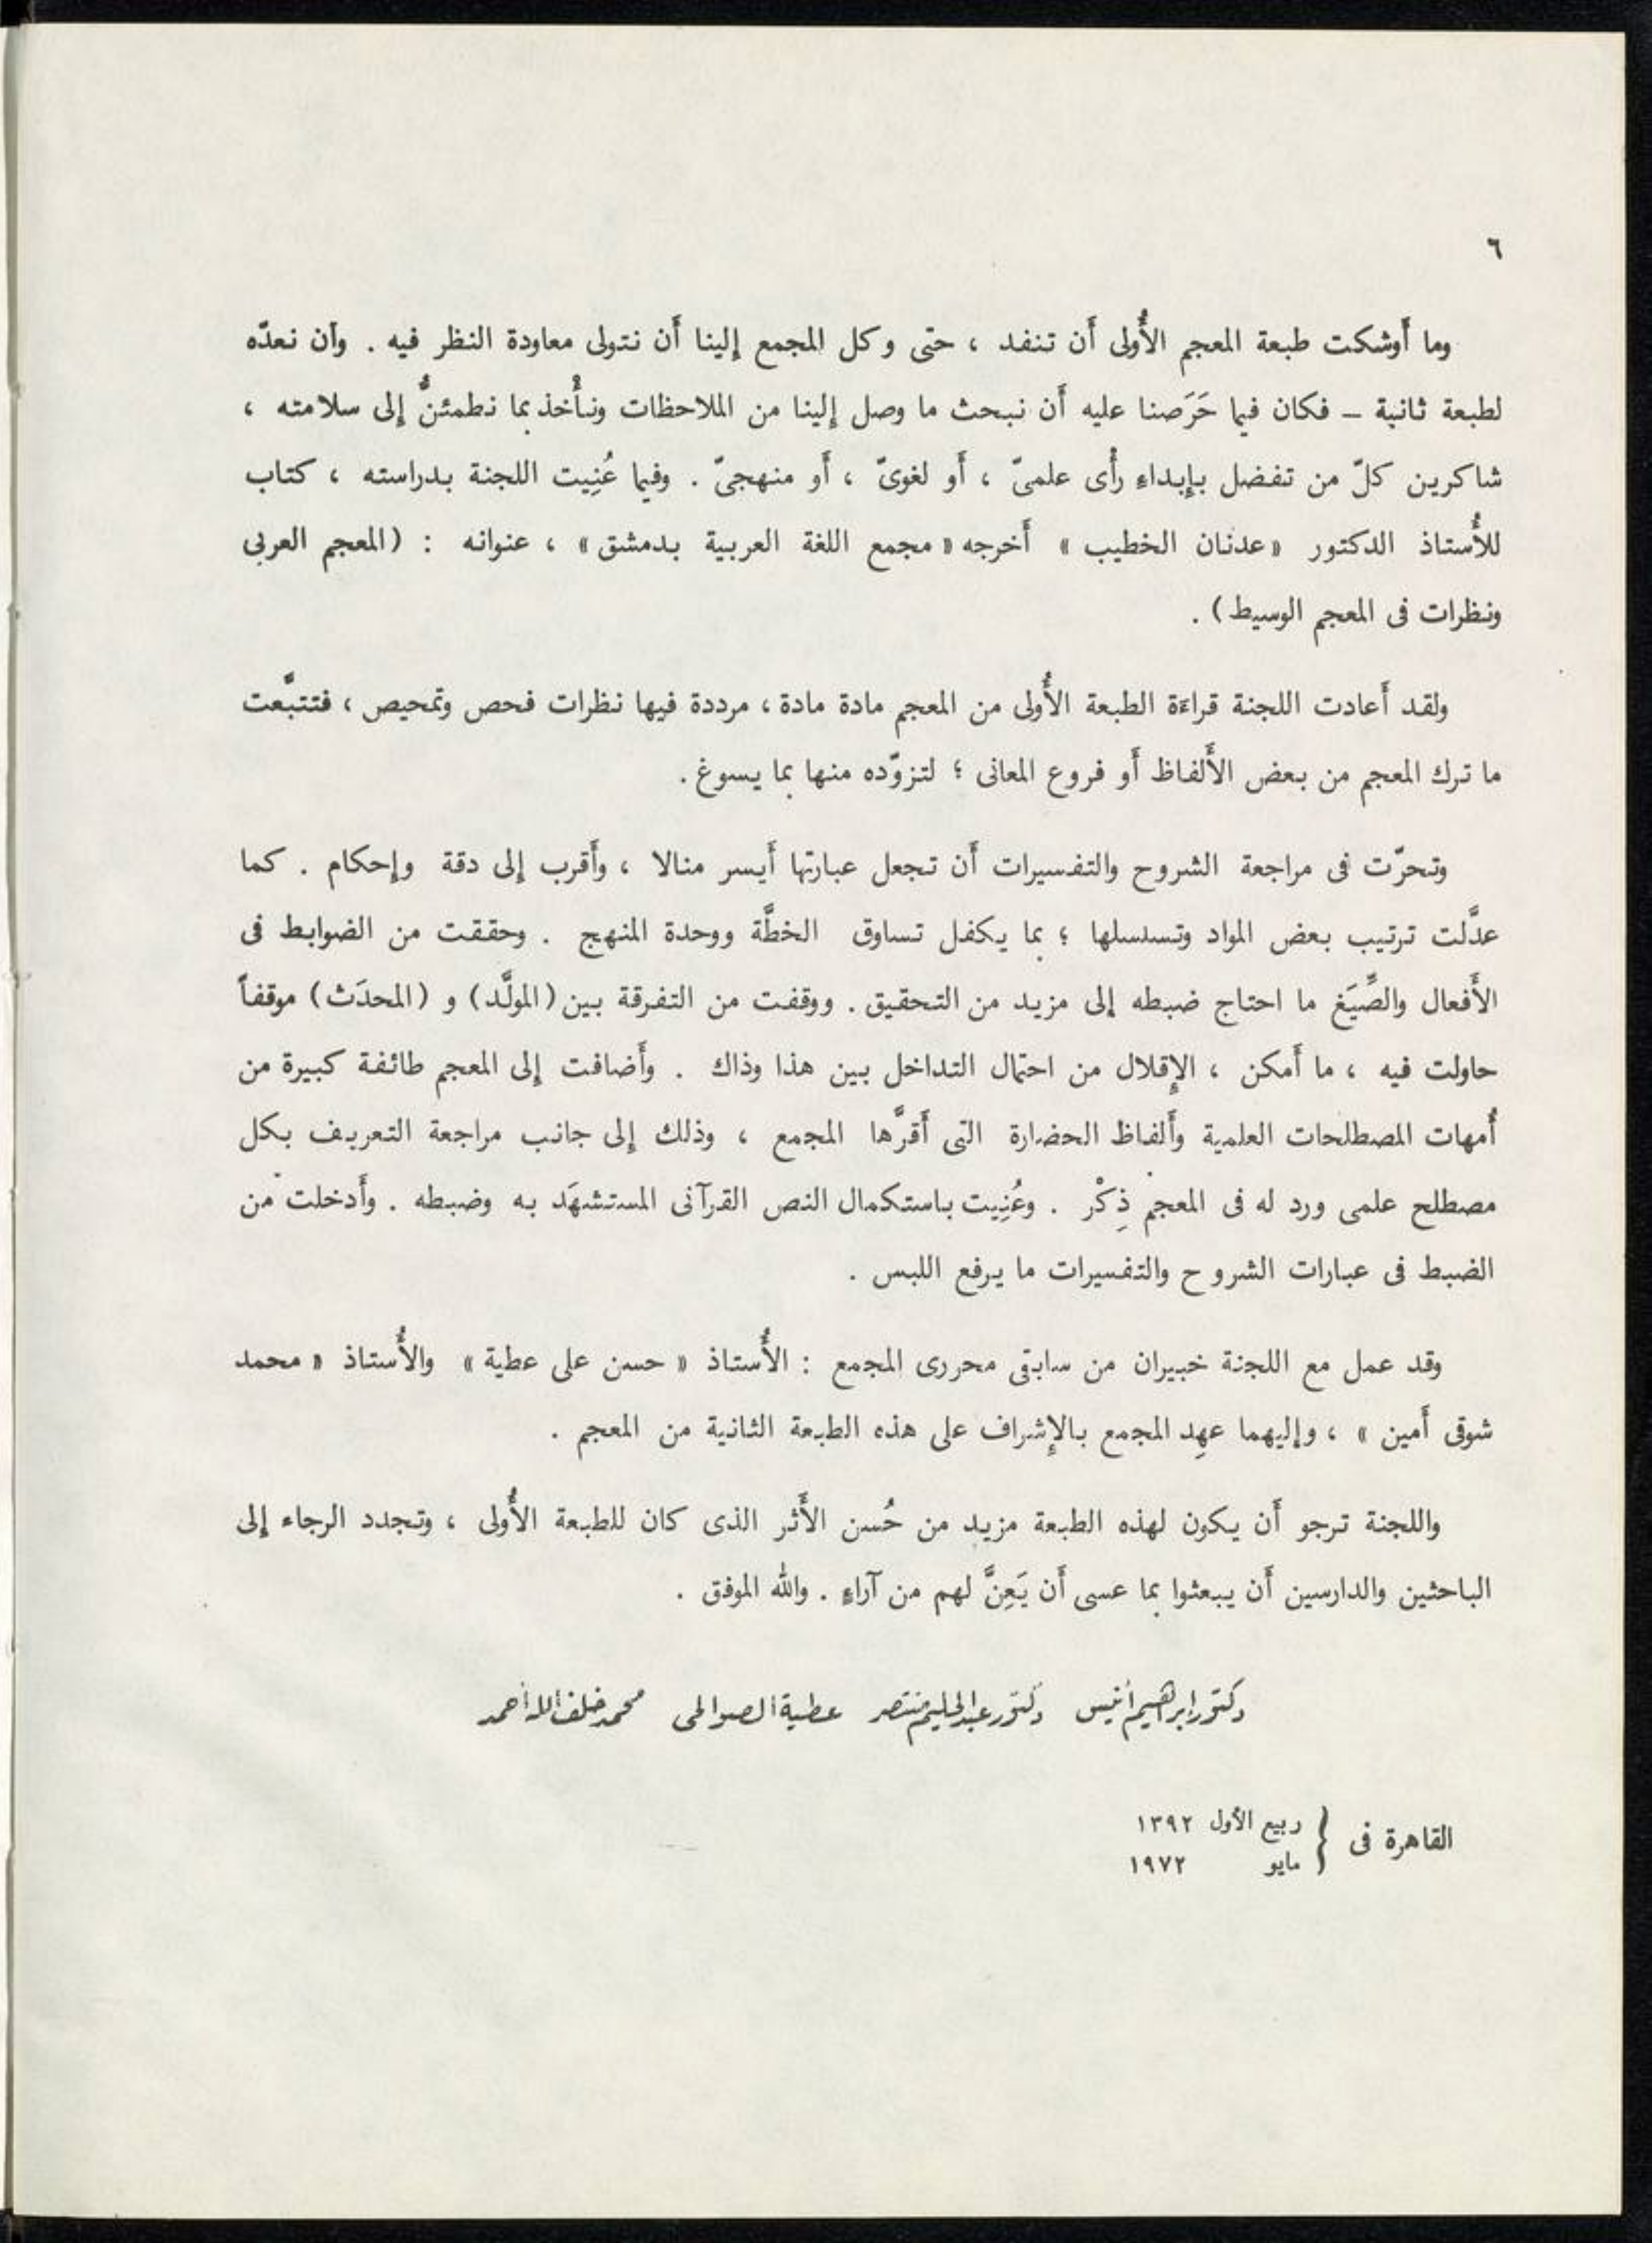 ٦
وما أَوشكت طبعة المعجم الأُولى أَن تنفد ، حتى وكل المجمع إلينا أَن نتولى معاودة النظر فيه . وأن نعدّه
لطبعة ثانية – فكان فيما حَرَصنا عليه أَن نبحث ما وصل إلينا من الملاحظات ونأْخذ بما نطمئنُّ إلى سلامته ،
شاكرين كلّ من تفضل بإِبداءِ رأْى علمىّ ، أَو لغوىّ ، أَو منهجىّ . وفيما عُنِيت اللجنة بدراسته ، كتاب
للأُستاذ الدكتور «عدنان الخطيب» أَخرجه «مجمع اللغة العربية بدمشق» ، عنوانه : (المعجم العربى
ونظرات فى المعجم الوسيط) .
ولقد أَعادت اللجنة قراءة الطبعة الأُولى من المعجم مادة مادة ، مرددة فيها نظرات فحص وتمحيص ، فتتبَّعت
ما ترك المعجم من بعض الأَلفاظ أَو فروع المعانى ؛ لتزوّده منها بما يسوغ .
وتحرّت فى مراجعة الشروح والتفسيرات أَن تجعل عبارتها أَيسر منالا ، وأَقرب إلى دقة وإحكام . كما
عدَّلت ترتيب بعض المواد وتسلسلها ؛ بما يكفل تساوق الخطَّة ووحدة المنهج . وحققت من الضوابط فى
الأَفعال والصِّيَغ ما احتاج ضبطه إلى مزيد من التحقيق . ووقفت من التفرقة بين (المولَّد) و (المحدَث) موقفاً
حاولت فيه ، ما أَمكن ، الإِقلال من احتمال التداخل بين هذا وذاك . وأَضافت إلى المعجم طائفة كبيرة من
أُمهات المصطلحات العلمية وأَلفاظ الحضارة التى أَقرَّها المجمع ، وذلك إلى جانب مراجعة التعريف بكل
مصطلح علمى ورد له فى المعجم ذِكْر . وعُنِيت باستكمال النص القرآنى المستشهَد به وضبطه . وأَدخلت من
الضبط فى عبارات الشروح والتفسيرات ما يرفع اللبس .
وقد عمل مع اللجنة خبيران من سابقى محررى المجمع : الأُستاذ « حسن على عطية » والأُستاذ « محمد
شوقى أَمين » ، وإليهما عهِد المجمع بالإِشراف على هذه الطبعة الثانية من المعجم .
واللجنة ترجو أَن يكون لهذه الطبعة مزيد من حُسن الأَثر الذى كان للطبعة الأُولى ، وتجدد الرجاء إلى
الباحثين والدارسين أَن يبعثوا بما عسى أَن يَعِنَّ لهم من آراءٍ . والله الموفق .
دكتور إبراهيم أنيس دكتور عبد الحليم منتصر عطية الصوالحى محمد خلف الله أحمد
القاهرة فى { ربيع الأول ١٣٩٢
مايو ١٩٧٢